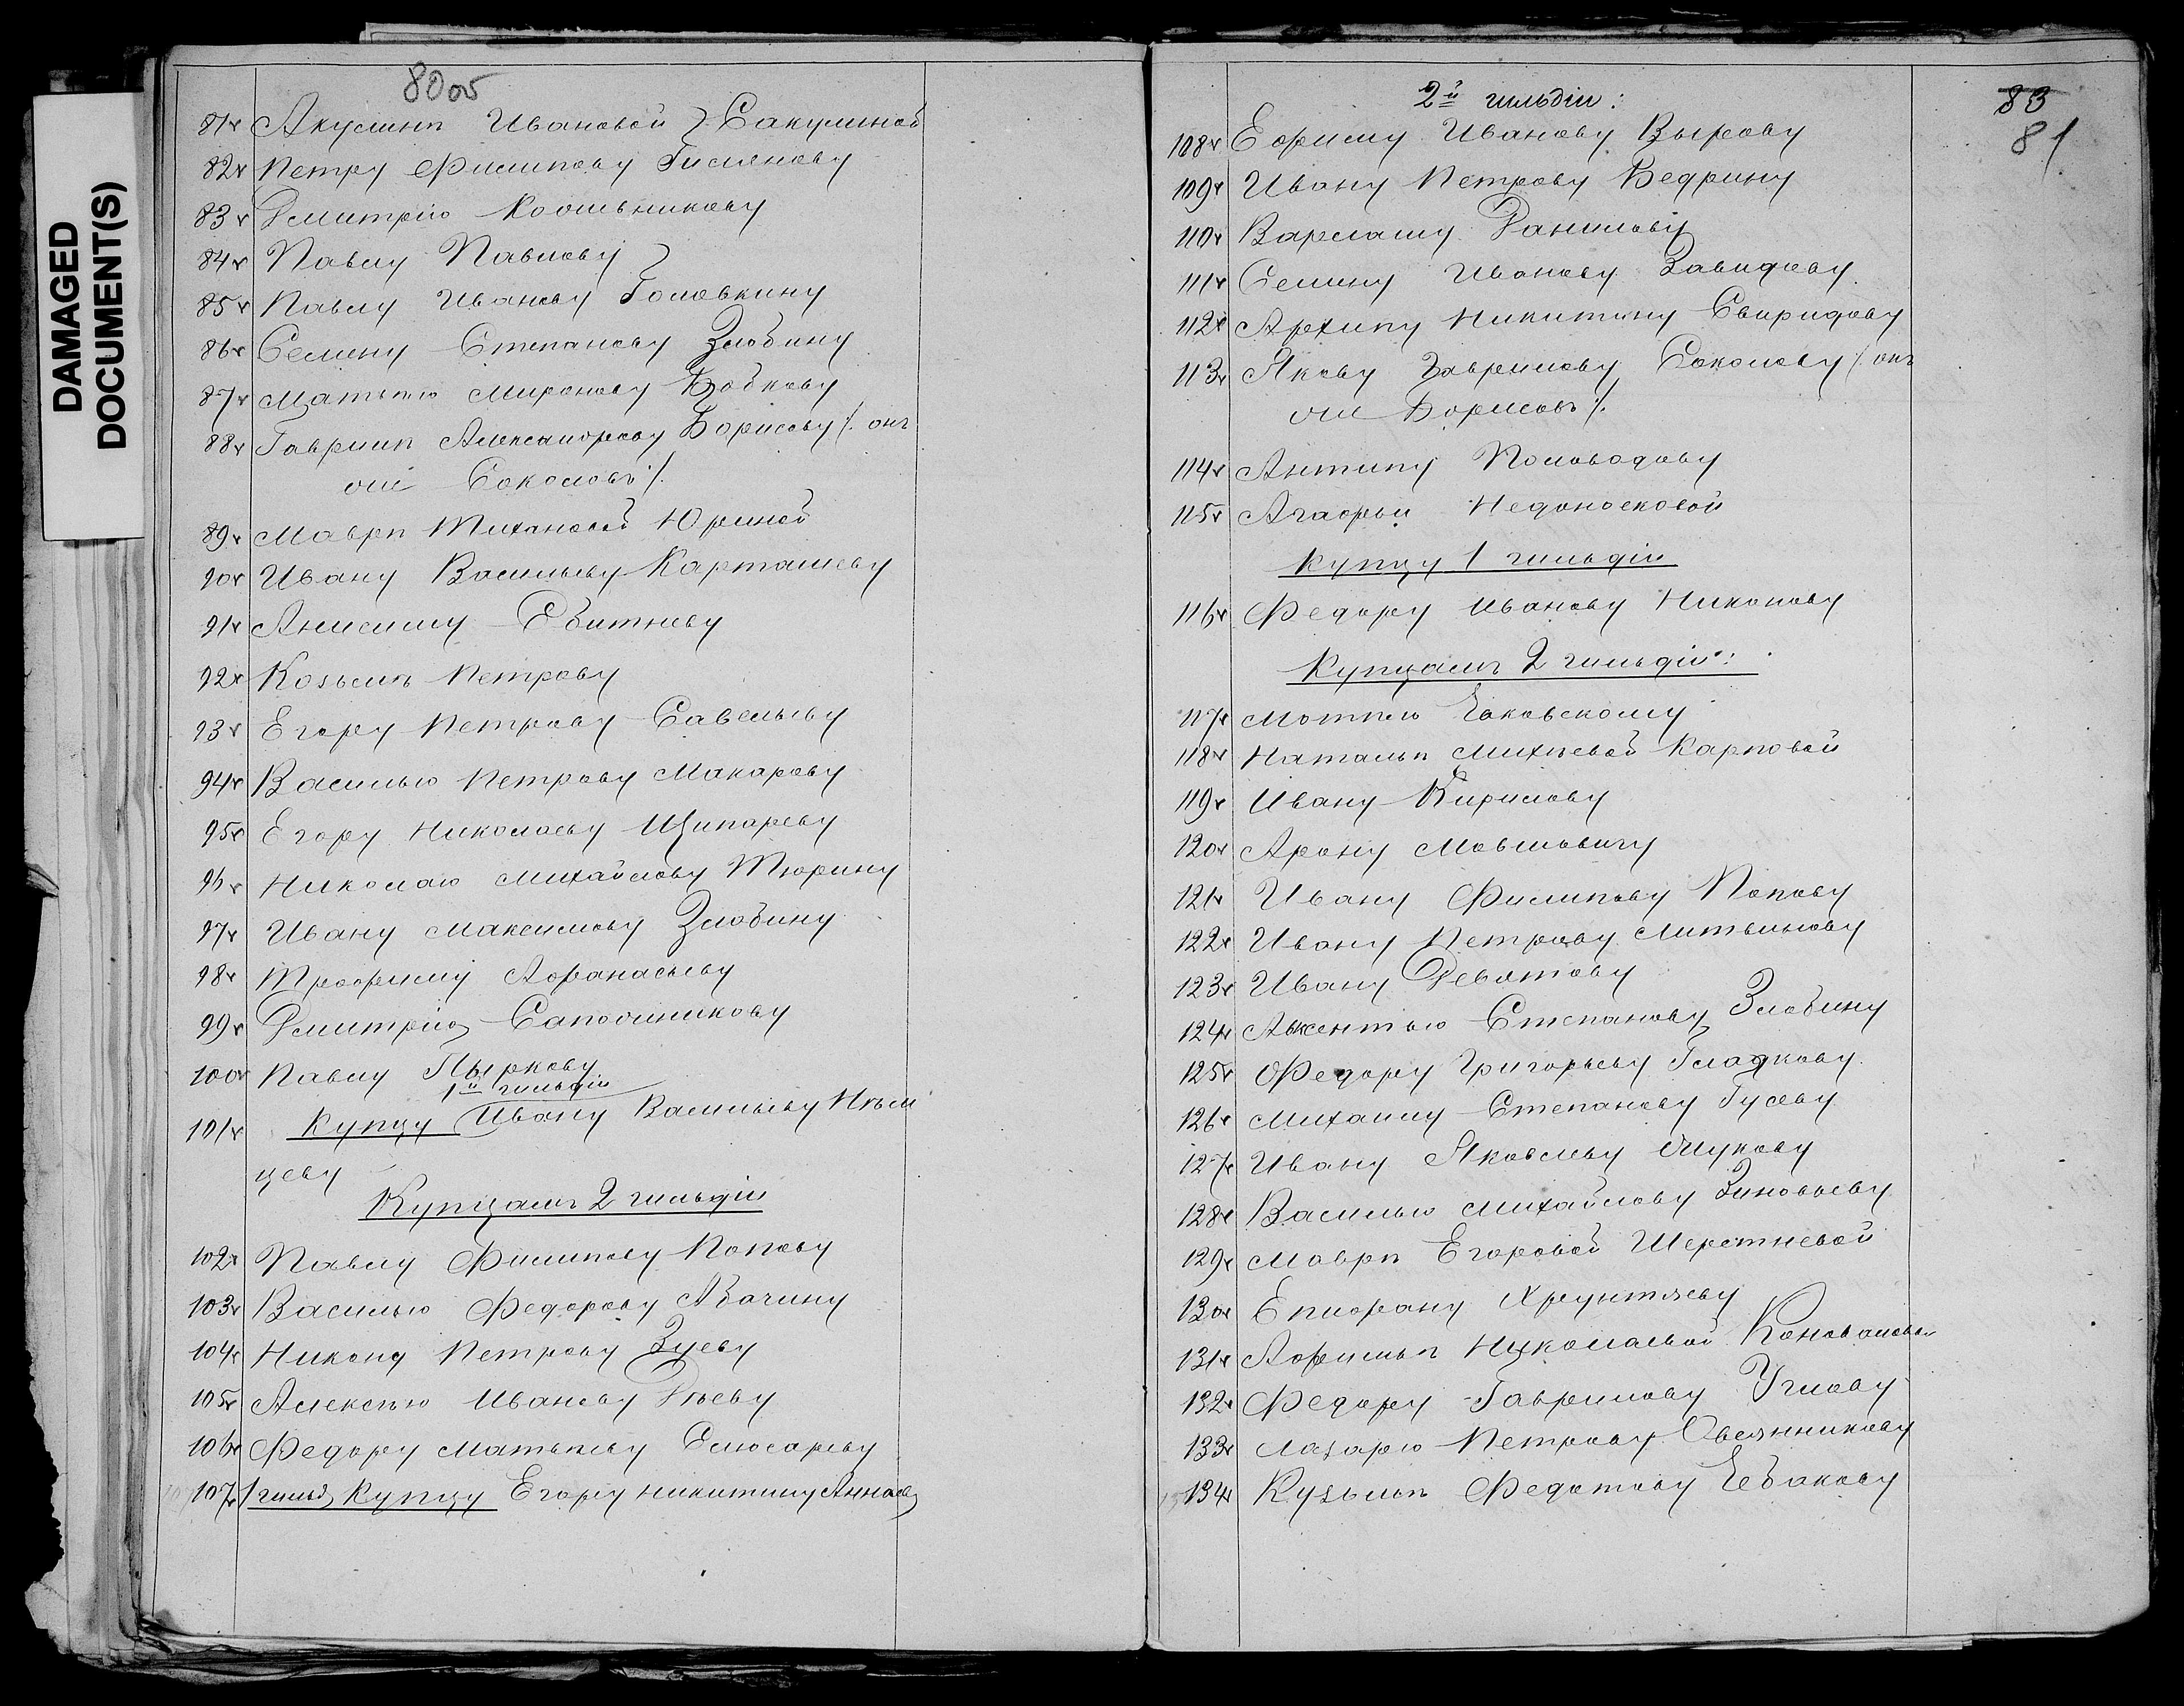 DAMAGED
DOCUMENT(S)
80 об
81 Акулинѣ Ивановой Сакулиной
82 Петру Филипову
83 Дмитрію
84 Павлу Павлову
85 Павлу Иванову Головкину
86 Семену Степанову Злобину
87 Матвѣю Миронову Бобкову
88 Гаврилѣ Александрову Борисову /. онъ
же Соколовъ ./.
89 Маврѣ Тихоновой Юриной
90 Ивану Васильеву Карташеву
91 Анисиму
92 Козьмѣ Петрову
93 Егору Петрову Савельеву
94 Василью Петрову Макарову
95 Егору Николаеву
96 Николаю Михайлову Тюрину
97 Ивану Максимову Злобину
98 Трофиму Афанасьеву
99 Дмитрію Сапожникову
100 Павлу Пыркову
1й гильдіи
101 Купцу Ивану Васильеву Нѣм
цеву
Купцамъ 2 гильдіи
102 Павлу Филипову Попову
103 Василью Федорову
104 Никону Петрову Зуеву
105 Алексѣю Иванову
106 Федору Матвѣеву Слюсареву
107 1 гильд Купцу Егору Никитину
2й гильдіи:
83
81
108 Ефиму Иванову Вырову
109 Ивану Петрову Ведрину
110 Варламу Данилову
111 Семену Иванову Завидову
112 Архипу Никитину Свиридову
113 Якову Гаврилову Соколову /. онъ
же Борисовъ ./.
114 Антипу Половодову
115 Агафьи Недоносковой
Купцу 1 гильдіи
116 Федору Иванову Никонову
Купцамъ 2 гильдіи:
117 Мотелю
118 Натальѣ Михѣевой Карповой
119 Ивану Кирилову
120 Арону Мовшовичу
121 Ивану Филипову Попову
122 Ивану Петрову Литвинову
123 Ивану Девятову
124 Авксентью Степанову Злобину
125 Федору Григорьеву Гладкову
126 Михаилу Степанову Гусеву
127 Ивану Яковлеву Жукову
128 Василью Михайлову Зиновьеву
129 Маврѣ Егоровой Шерстневой
130 Епифану
131 Афимьѣ Николаевой Коноваловой
132 Федору Гаврилову Углову
133 Лазарю Петрову Овсянникову
134 Кузьмѣ Федотову Чебакову